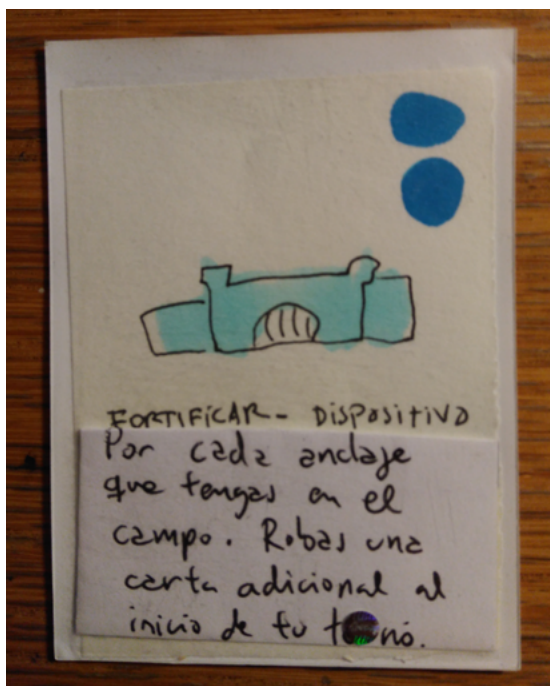 FORTIFICAR - DISPOSITIVO
Por cada anclaje
que tengas en el
campo. Robas una
carta adicional al
inicio de tu